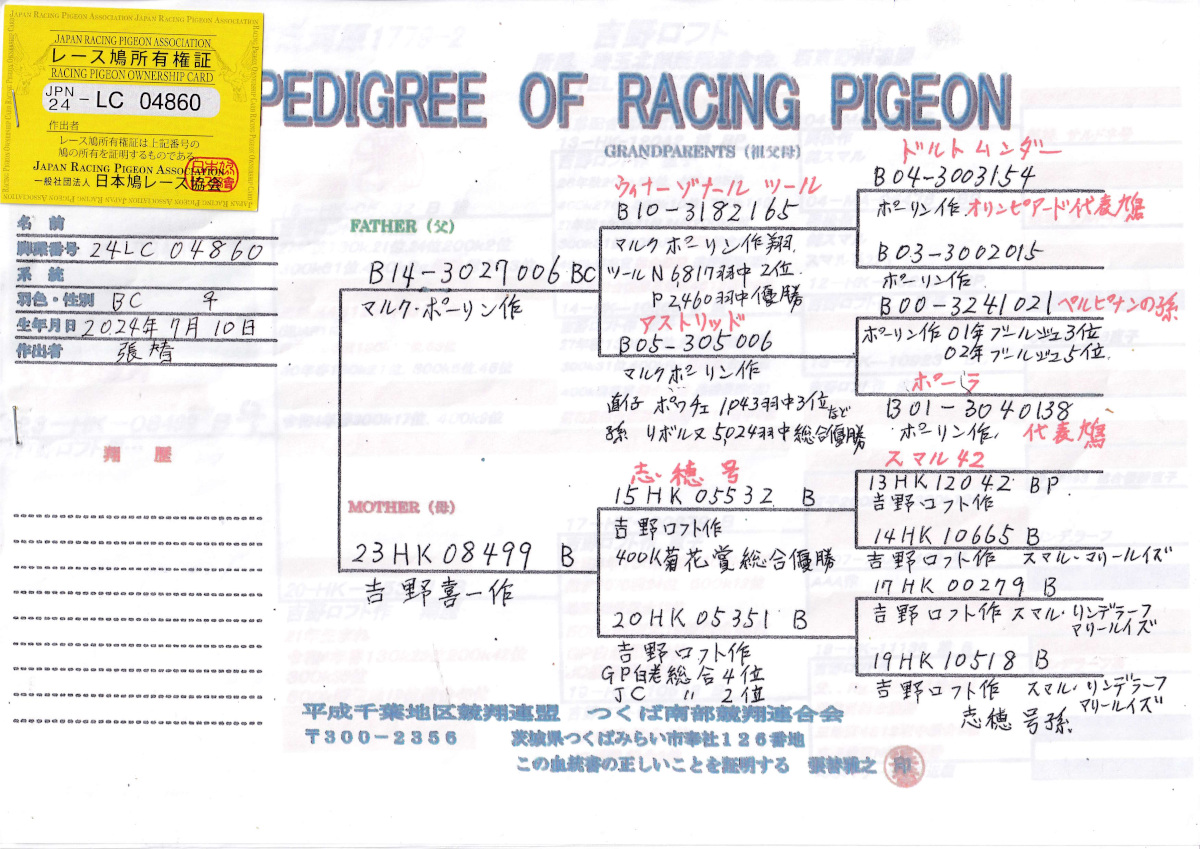 JAPAN RACING PIGEON ASSOCIATION
レース鳩所有権証
RACING PIGEON OWNERSHIP CARD
JPN 24 - LC 04860
作出者
レース鳩所有権証は上記番号の
鳩の所有を証明するものである
JAPAN RACING PIGEON ASSOCIATION
一般社団法人 日本鳩レース協会
PEDIGREE OF RACING PIGEON
GRANDPARENTS (祖父母)
名前
脚環番号 24LC 04860
系統
羽色・性別 BC ♀
生年月日 2024年7月10日
作出者 張替
翔歴
FATHER (父)
B14-3027006 BC
マルク・ポーリン作
MOTHER (母)
23HK08499 B
吉野喜一作
ウィナーゾナール ツール
B10-3182165
マルクポーリン作翔
ツールN6817羽中2位
P2460羽中優勝
アストリッド
B05-305006
マルクポーリン作
直仔 ポウチェ1043羽中3位など
孫 リボルヌ5,024羽中総合優勝
志穂号
15HK05532 B
吉野ロフト作
400K菊花賞総合優勝
20HK05351 B
吉野ロフト作
GP白老総合4位
JC 〃 2位
ドルトムンダー
B04-3003154
ポーリン作 オリンピアード代表鳩
B03-3002015
ポーリン作
B00-3241021 ペルピナンの孫
ポーリン作 01年ブールジュ3位
02年ブールジュ5位
ポーラ
B01-3040138
ポーリン作 代表鳩
スマル42
13HK12042 BP
吉野ロフト作
14HK10665 B
吉野ロフト作 スマル・マリールイズ
17HK00279 B
吉野ロフト作 スマル・リンデラーフ
マリールイズ
19HK10518 B
吉野ロフト作 スマル・リンデラーフ
マリールイズ
志穂号孫
平成千葉地区競翔連盟 つくば南部競翔連合会
〒300-2356 茨城県つくばみらい市奉社126番地
この血統書の正しいことを証明する 張替雅之 印